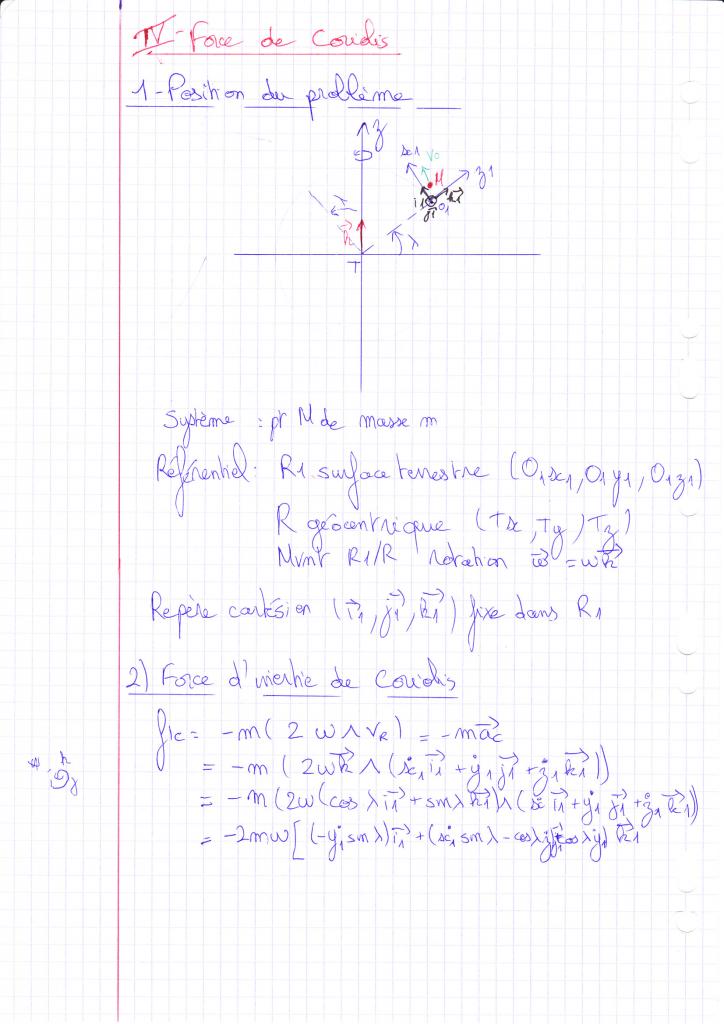 IV - Force de Coriolis
1 - Position du problème
z
x1 V0 M z1
i1 j1 O1 k1
k λ
T
Système : pt M de masse m
Référentiel : R1 surface terrestre (O1x1, O1y1, O1z1)
R géocentrique (Tx, Ty, Tz)
Mvnt R1/R rotation ω⃗ = ωk⃗
Repère cartésien (i⃗1, j⃗1, k⃗1) fixe dans R1
2) Force d'inertie de Coriolis
fic = -m( 2 ω ∧ VR ) = -m a⃗c
= -m ( 2ωk⃗ ∧ (ẋ1 i⃗1 + ẏ1 j⃗1 + ż1 k⃗1))
= -m (2ω(cos λ i⃗1 + sin λ k⃗1) ∧ (ẋ i⃗1 + ẏ1 j⃗1 + ż1 k⃗1))
= -2mω[ (-ẏ1 sin λ) i⃗1 + (ẋ1 sin λ - cos λ ż1) j⃗1 + cos λ ẏ1) k⃗1